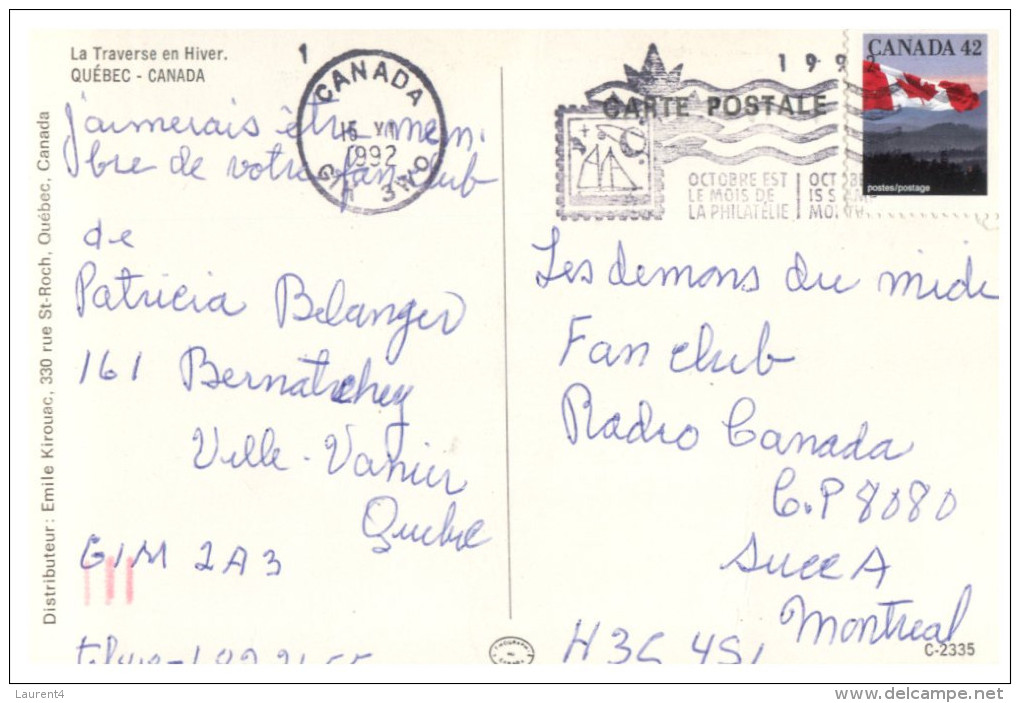 La Traverse en Hiver.
QUÉBEC - CANADA
j'aimerais être mem.
bre de votre fan club
de
Patricia Belanger
161 Bernatchey
Ville-Vanier
Quebec
G1M 2A3
Distributeur: Emile Kirouac, 330 rue St-Roch, Québec, Canada
1
CANADA
15
1992
1992
CARTE POSTALE
OCTOBRE EST
LE MOIS DE
LA PHILATÉLIE
CANADA 42
postes/postage
Les demons du midi
Fan club
Radio Canada
C.P 8080
Succ A
Montreal
H3C 4S1
C-2335
Laurent4
www.delcampe.net